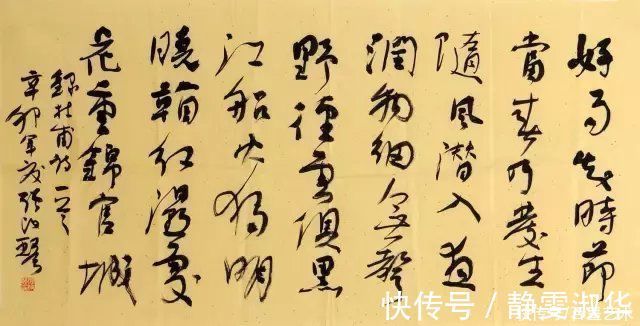 好雨知時節
當春乃發生
隨風潛入夜
潤物細無聲
野徑雲俱黑
江船火獨明
曉看紅濕處
花重錦官城
錄杜甫詩一首
辛卯年夏張改琴
快传号 / 静淑华